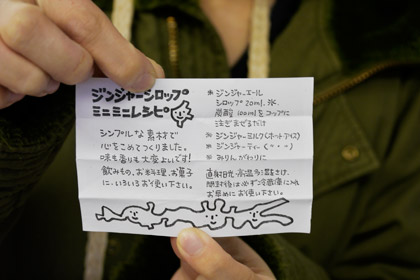 ジンジャーシロップ
ミニミニレシピ
シンプルな素材で
心をこめてつくりました。
味も香りも大変よいです!
飲みもの、お料理、お菓子
に、いろいろお使い下さい。
ジンジャーエール
シロップ 20ml. 氷.
炭酸 100mlをコップに
注ぎまぜるだけ
ジンジャーミルク(ホットアイス)
ジンジャーティー(〃・〃)
みりんがわりに
直射日光・高温多湿をさけ、
開封後は必ず冷蔵庫に入れ
お早めにお使い下さい。